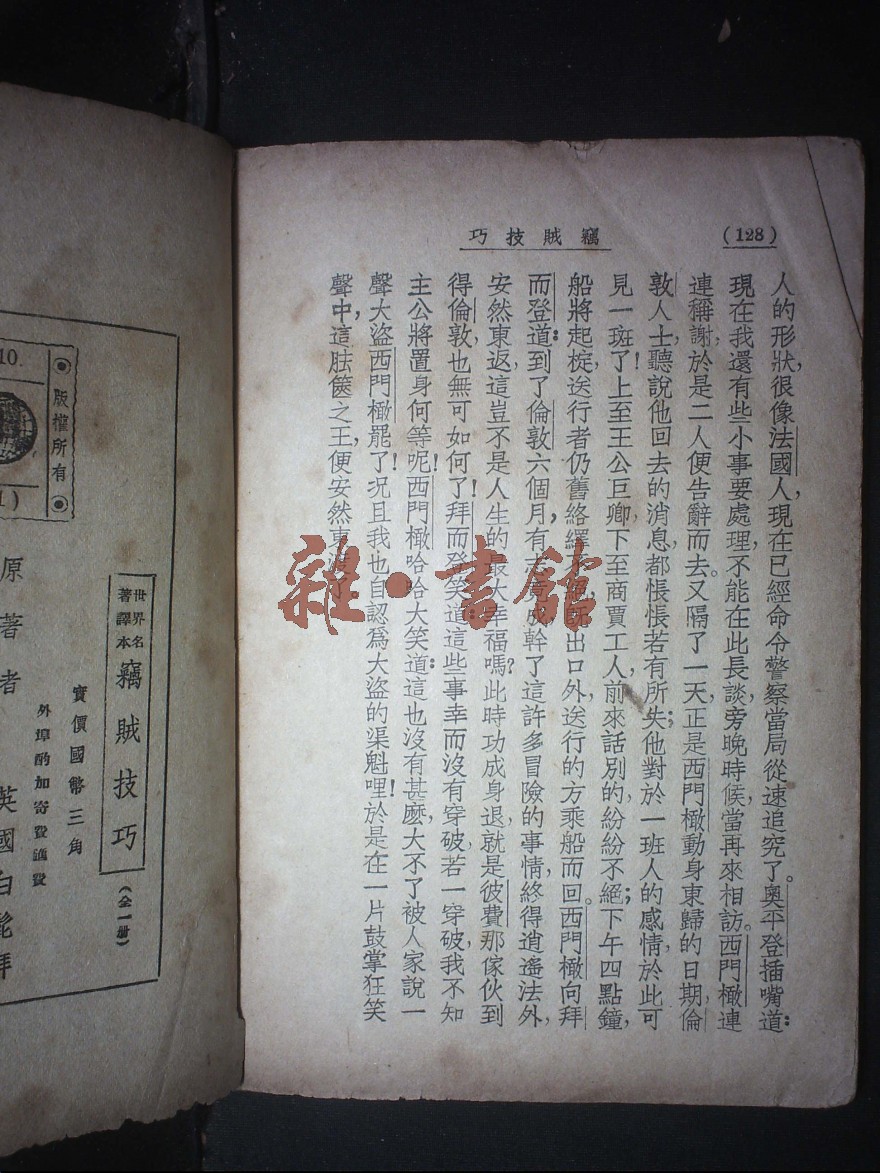 (128)
竊賊技巧
人的形狀,很像法國人,現在已經命令警察當局從速追究了。奧平登插嘴道:
現在我還有些小事要處理,不能在此長談,旁晚時候,當再來相訪。西門橄連
連稱謝,於是二人便告辭而去。又隔了一天,正是西門橄動身東歸的日期,倫
敦人士,聽說他回去的消息,都悵悵若有所失;他對於一班人的感情,於此可
見一班了!上至王公巨卿,下至商賈工人,前來話別的,紛紛不絕;下午四點鐘,
船將起椗,送行者仍舊絡繹不絕,既出口外,送行的方乘船而回。西門橄向拜
而登道:到了倫敦六個月,有志竟成,幹了這許多冒險的事情,終得逍遙法外,
安然東返,這豈不是人生的最大幸福嗎?此時功成身退,就是彼費那傢伙到
得倫敦,也無可如何了!拜而登笑道:這些事幸而沒有穿破,若一穿破,我不知
主公將置身何等呢!西門橄哈哈大笑道:這也沒有甚麼大不了,被人家說一
聲大盜西門橄罷了!況且我也自認爲大盜的渠魁哩!於是在一片鼓掌狂笑
聲中,這胠篋之王,便安然東渡了。
雜·書館
10.
版權所有
世界名
著譯本
竊賊技巧
(全一册)
實價國幣三角
外埠酌加寄費滙費
原著者
英國白髦拜